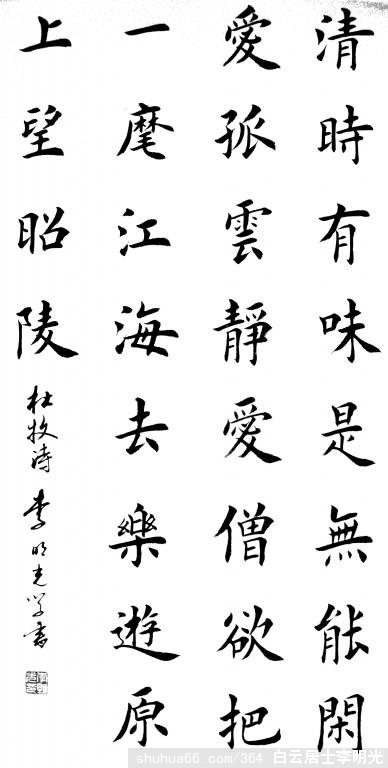 清時有味是無能閑
愛孤雲靜愛僧欲把
一麾江海去樂遊原
上望昭陵
杜牧诗 李明光学书
shuhua66.com/364 白云居士李明光